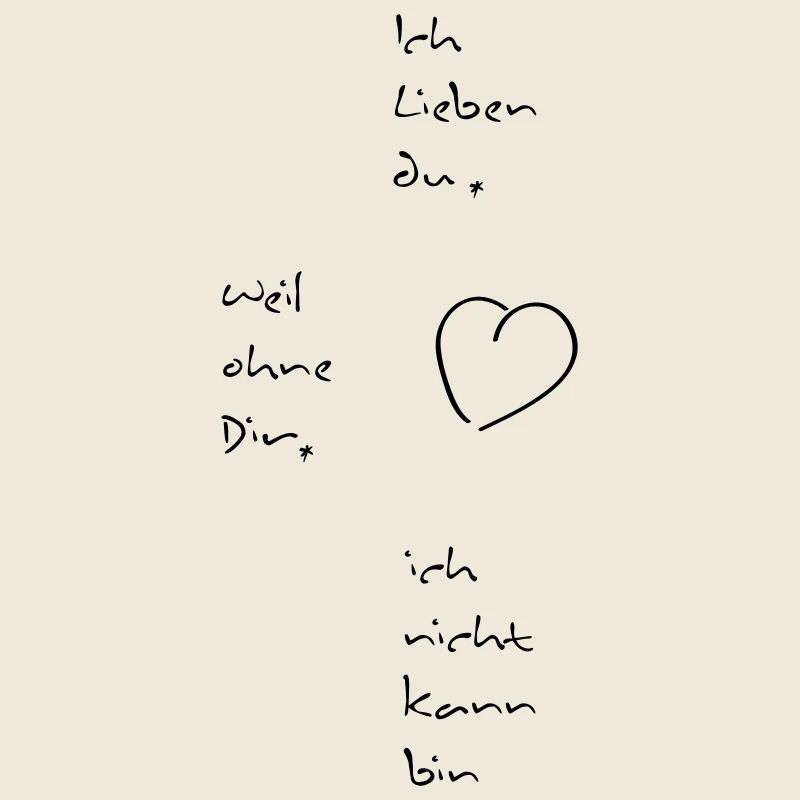 Ich
Lieben
du *
weil
ohne
Dir*
ich
nicht
kann
bin